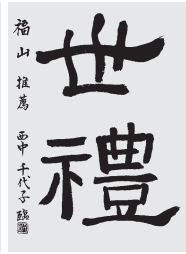 世禮
福山 推薦
西中 千代子 臨